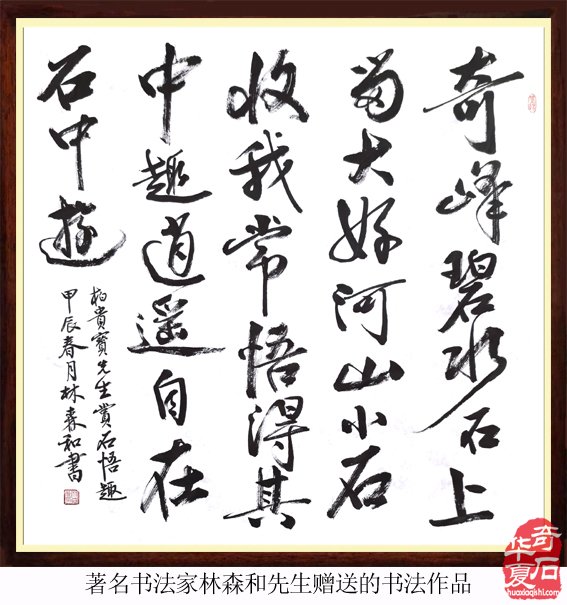 奇峰碧水石上
留大好河山小石
收我常悟得其
中趣逍遙自在
石中遊
柏貴寶先生賞石悟趣
甲辰春月林森和書
著名书法家林森和先生赠送的书法作品
华夏奇石
huaxiaqishi.com